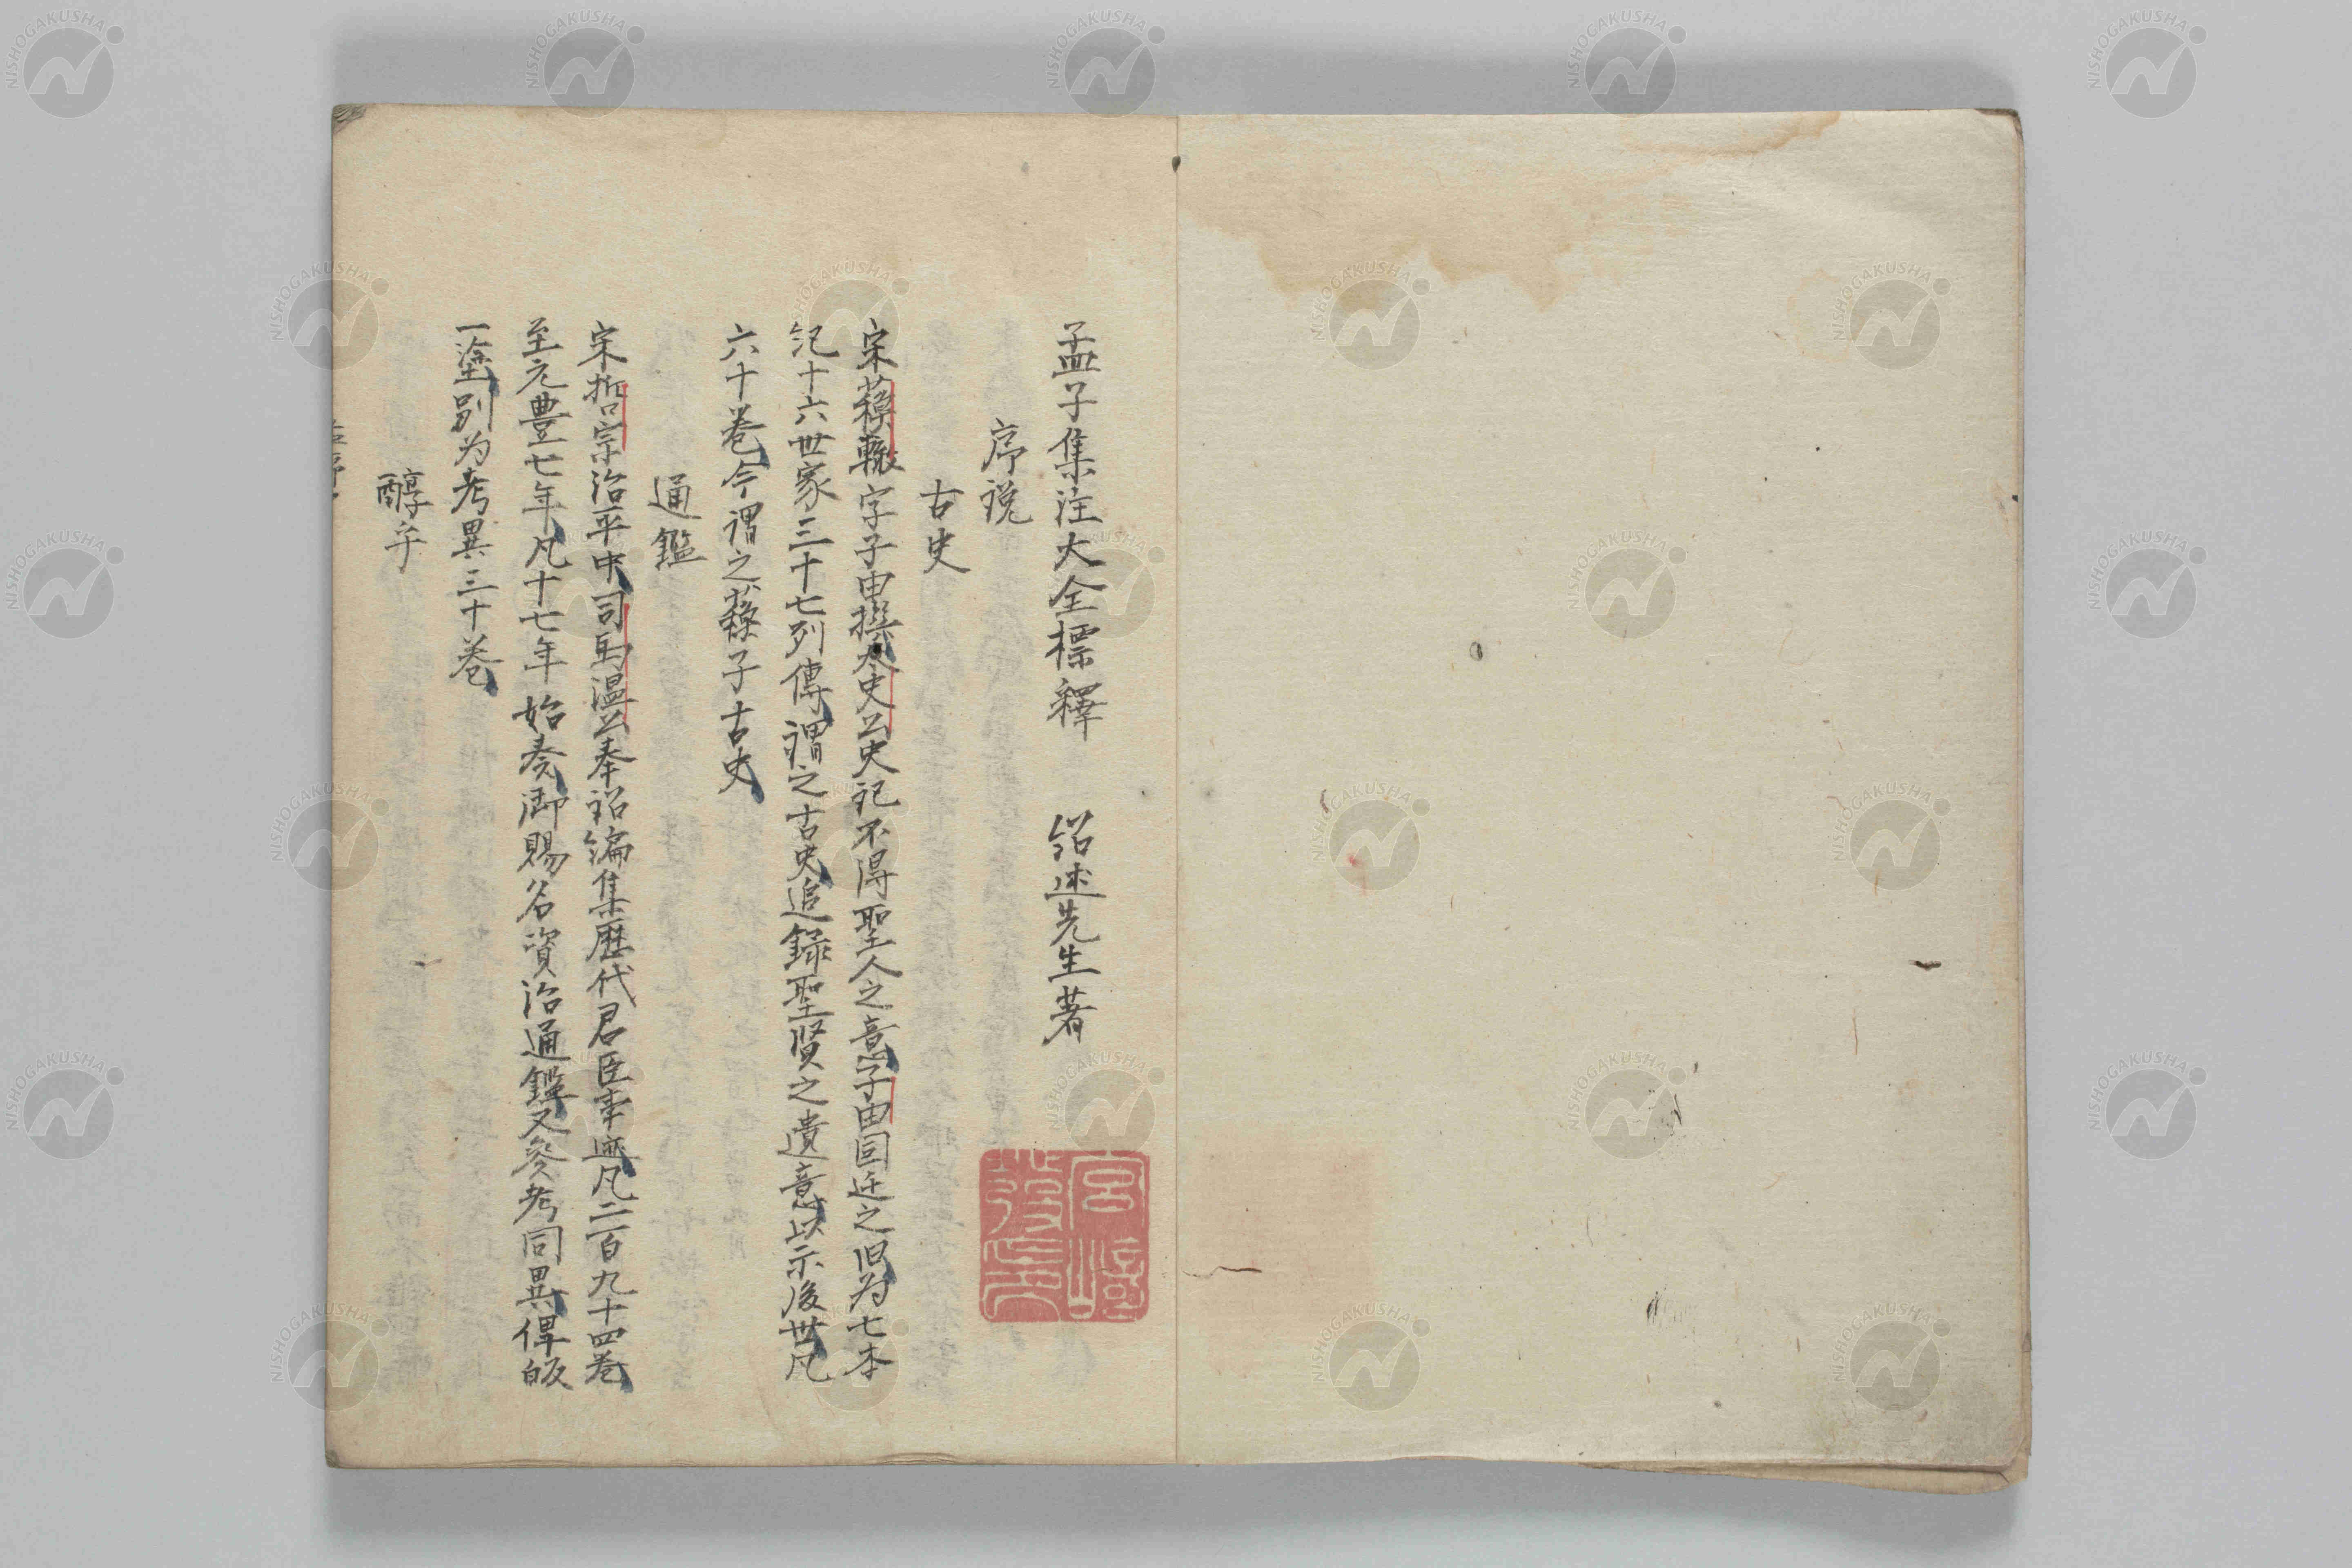 孟子集注大全標釋　紹述先生著
序説
古史
宋蘇轍字子由撰太史公史記不得聖人之意子由因迁之旧为七本
紀十六世家三十七列傳謂之古史追録聖賢之遺意以示後世凡
六十巻今謂之蘇子古史
通鑑
宋哲宗治平中司馬温公奉詔編集歴代君臣事迹凡二百九十四巻
至元豊七年凡十七年始奏御賜名資治通鑑又参考同異俾皈
一塗別为考異三十巻
醇乎
NISHOGAKUSHA